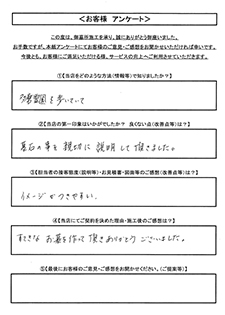 ＜お客様 アンケート＞
この度は、御墓所施工を承り、誠にありがとう御座いました。
お手数ですが、本紙アンケートにてお客様のご意見・ご感想をお聞かせいただければ幸いです。
今後とも、お客様にご満足いただける様、サービスの向上へご利用させていただきます。
①【当店をどのような方法(情報等)で知りましたか？】
霊園を歩いていて
②【当店の第一印象はいかがでしたか？ 良くない点(改善点等)は？】
墓石の事を親切に説明して頂きました。
③【担当者の接客態度(説明等)・お見積書・図面等のご感想(改善点等)は？】
イメージがつきやすい。
④【当店にてご契約を決めた理由・施工後のご感想は？】
すてきなお墓を作って頂きありがとうございました。
⑤【最後にお客様のご意見・ご感想をお聞かせください。(ご提案等)】